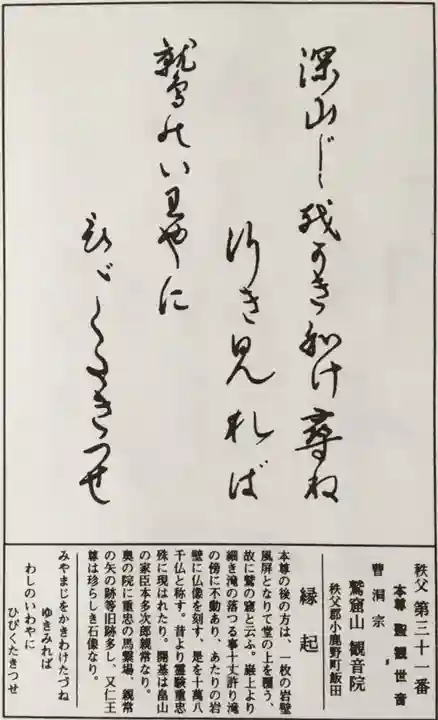 深山じを かきわけ尋ね
行き見れば
鷲のいわやに
ひゞくたきつせ
秩父 第三十一番
本尊 聖観世音
曹洞宗
鷲窟山 観音院
秩父郡小鹿野町飯田
縁起
本尊の後の方は、一枚の岩壁
風屏となりて堂の上を覆う、
故に鷲の窟と云ふ。巌上より
細き滝の落つる事十丈許り滝
の傍に不動あり、あたりの岩
壁に仏像を刻す、是を十萬八
千仏と称す。昔より霊験重忠
殊に現はれたり。開基は畠山
の家臣本多次郎親常なり。
奥の院に重忠の馬繋場、親常
の矢の跡等旧跡多し、又仁王
尊は珍らしき石像なり。
みやまじをかきわけたづね
ゆきみれば
わしのいわやに
ひびくたきつせ